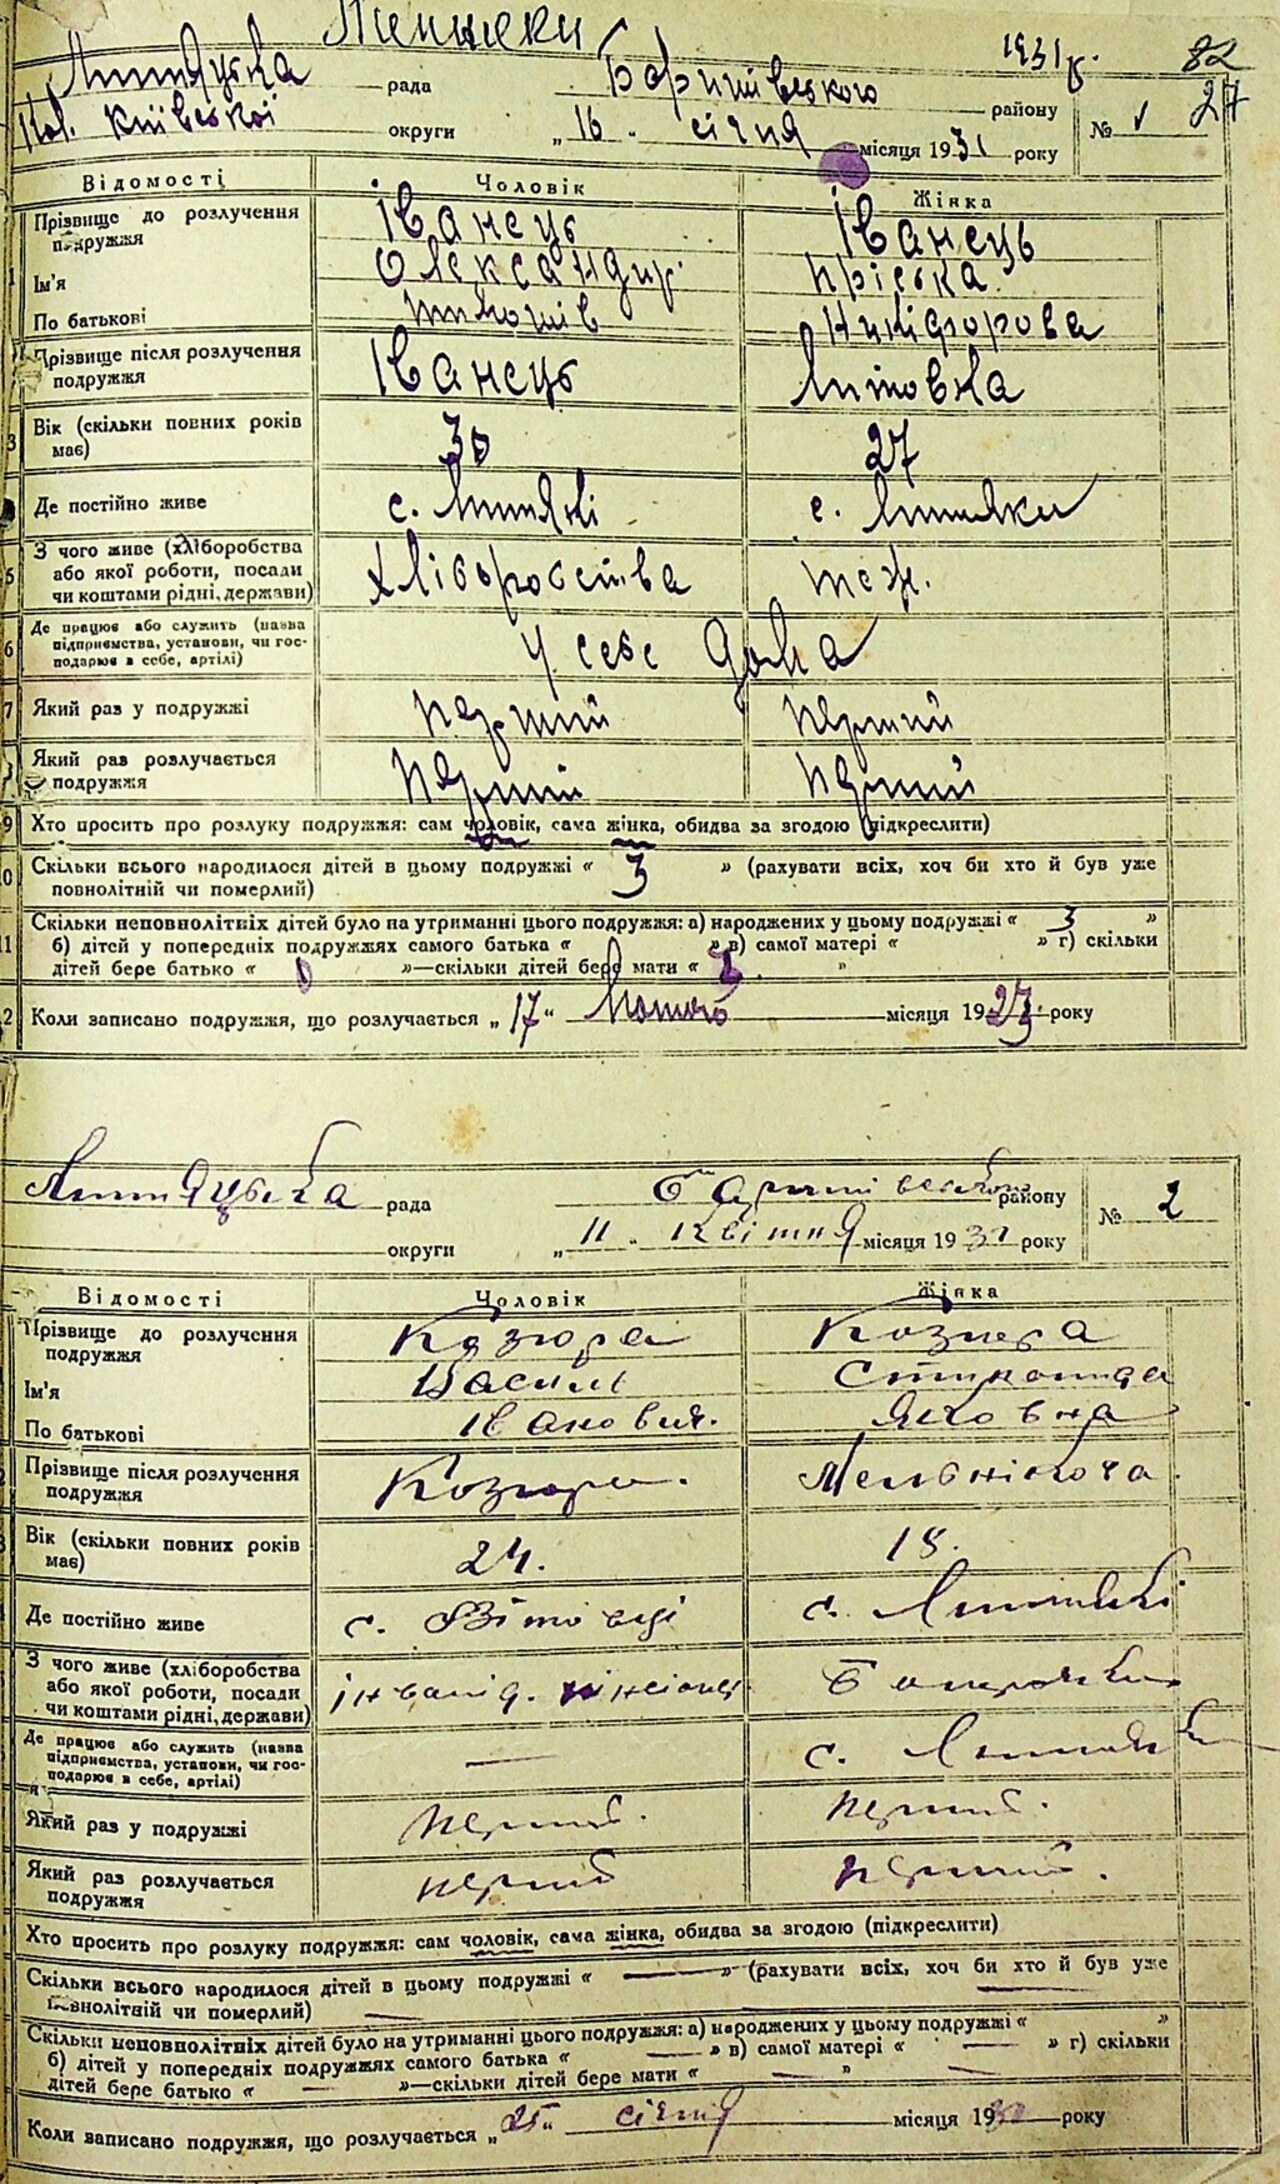 1931 р. 82
рада Баришівського району № 1 27
Кол. Київської округи „16" січня місяця 1931 року
Відомості Чоловік Жінка
Прізвище до розлучення подружжя Іванець Іванець
Ім'я Олександр. Пріська.
По батькові Тимошів Никіфорова
Прізвище після розлучення подружжя Іванець Литовка
3 Вік (скільки повних років має) 30 27
Де постійно живе с. Липняки с. Липняки
5 З чого живе (хліборобства або якої роботи, посади чи коштами рідні, держави) хліборобства теж.
6 Де працює або служить (назва підприємства, установи, чи господарює в себе, артілі) У себе дома
7 Який раз у подружжі перший перший
Який раз розлучається подружжя перший перший
9 Хто просить про розлуку подружжя: сам чоловік, сама жінка, обидва за згодою (підкреслити)
0 Скільки всього народилося дітей в цьому подружжі « 3 » (рахувати всіх, хоч би хто й був уже
повнолітній чи померлий)
11 Скільки неповнолітніх дітей було на утриманні цього подружжя: а) народжених у цьому подружжі « 3 »
б) дітей у попередніх подружжях самого батька « » в) самої матері « » г) скільки
дітей бере батько « »—скільки дітей бере мати « »
2 Коли записано подружжя, що розлучається „17" Лютого місяця 1923. року
рада Баришівського району № 2
округи „11" Квітня місяця 1931 року
Відомості Чоловік Жінка
Прізвище до розлучення подружжя Козюра Козюра
Ім'я Василь
По батькові Іванович. Яковна
Прізвище після розлучення подружжя Козюра.
Вік (скільки повних років має) 24. 18.
Де постійно живе с. Войтовці с. Липняки
З чого живе (хліборобства або якої роботи, посади чи коштами рідні, держави) інвалід.
Де працює або служить (назва підприємства, установи, чи господарює в себе, артілі) — с. Липняки
Який раз у подружжі перший. перший.
Який раз розлучається подружжя перший перший.
Хто просить про розлуку подружжя: сам чоловік, сама жінка, обидва за згодою (підкреслити)
Скільки всього народилося дітей в цьому подружжі « — » (рахувати всіх, хоч би хто й був уже
повнолітній чи померлий) —
Скільки неповнолітніх дітей було на утриманні цього подружжя: а) народжених у цьому подружжі « — »
б) дітей у попередніх подружжях самого батька « — » в) самої матері « — » г) скільки
дітей бере батько « — »—скільки дітей бере мати « — »
Коли записано подружжя, що розлучається „25" січня місяця 19 року